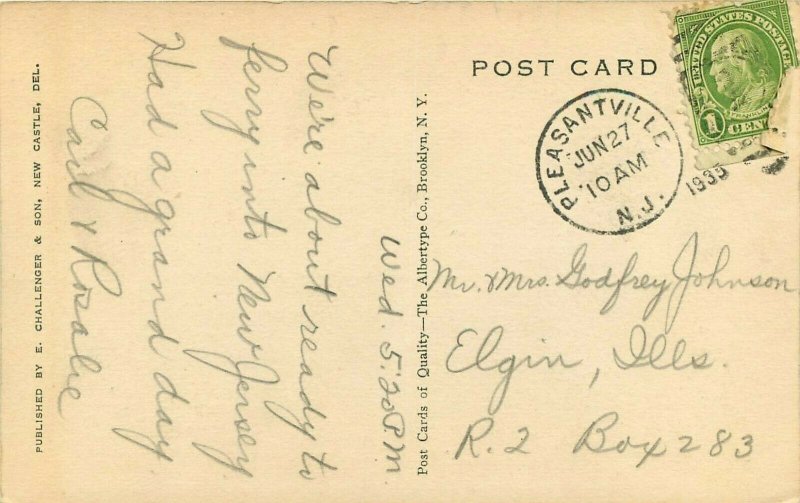 POST CARD
UNITED STATES POSTAGE
FRANKLIN
1 CENT
PLEASANTVILLE
JUN 27
10 AM
N.J.
1935
Mr. & Mrs. Godfrey Johnson
Elgin, Ills.
R. 2 Box 283
Wed. 5:20 PM.
We're about ready to
ferry into New Jersey
Had a grand day.
Carl & Rosalie
Post Cards of Quality—The Albertype Co., Brooklyn, N. Y.
PUBLISHED BY E. CHALLENGER & SON, NEW CASTLE, DEL.